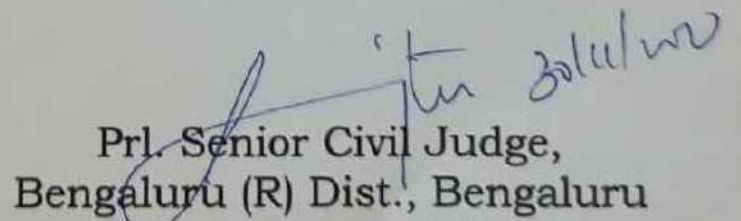 Prl. Senior Civil Judge,
Bengaluru (R) Dist., Bengaluru